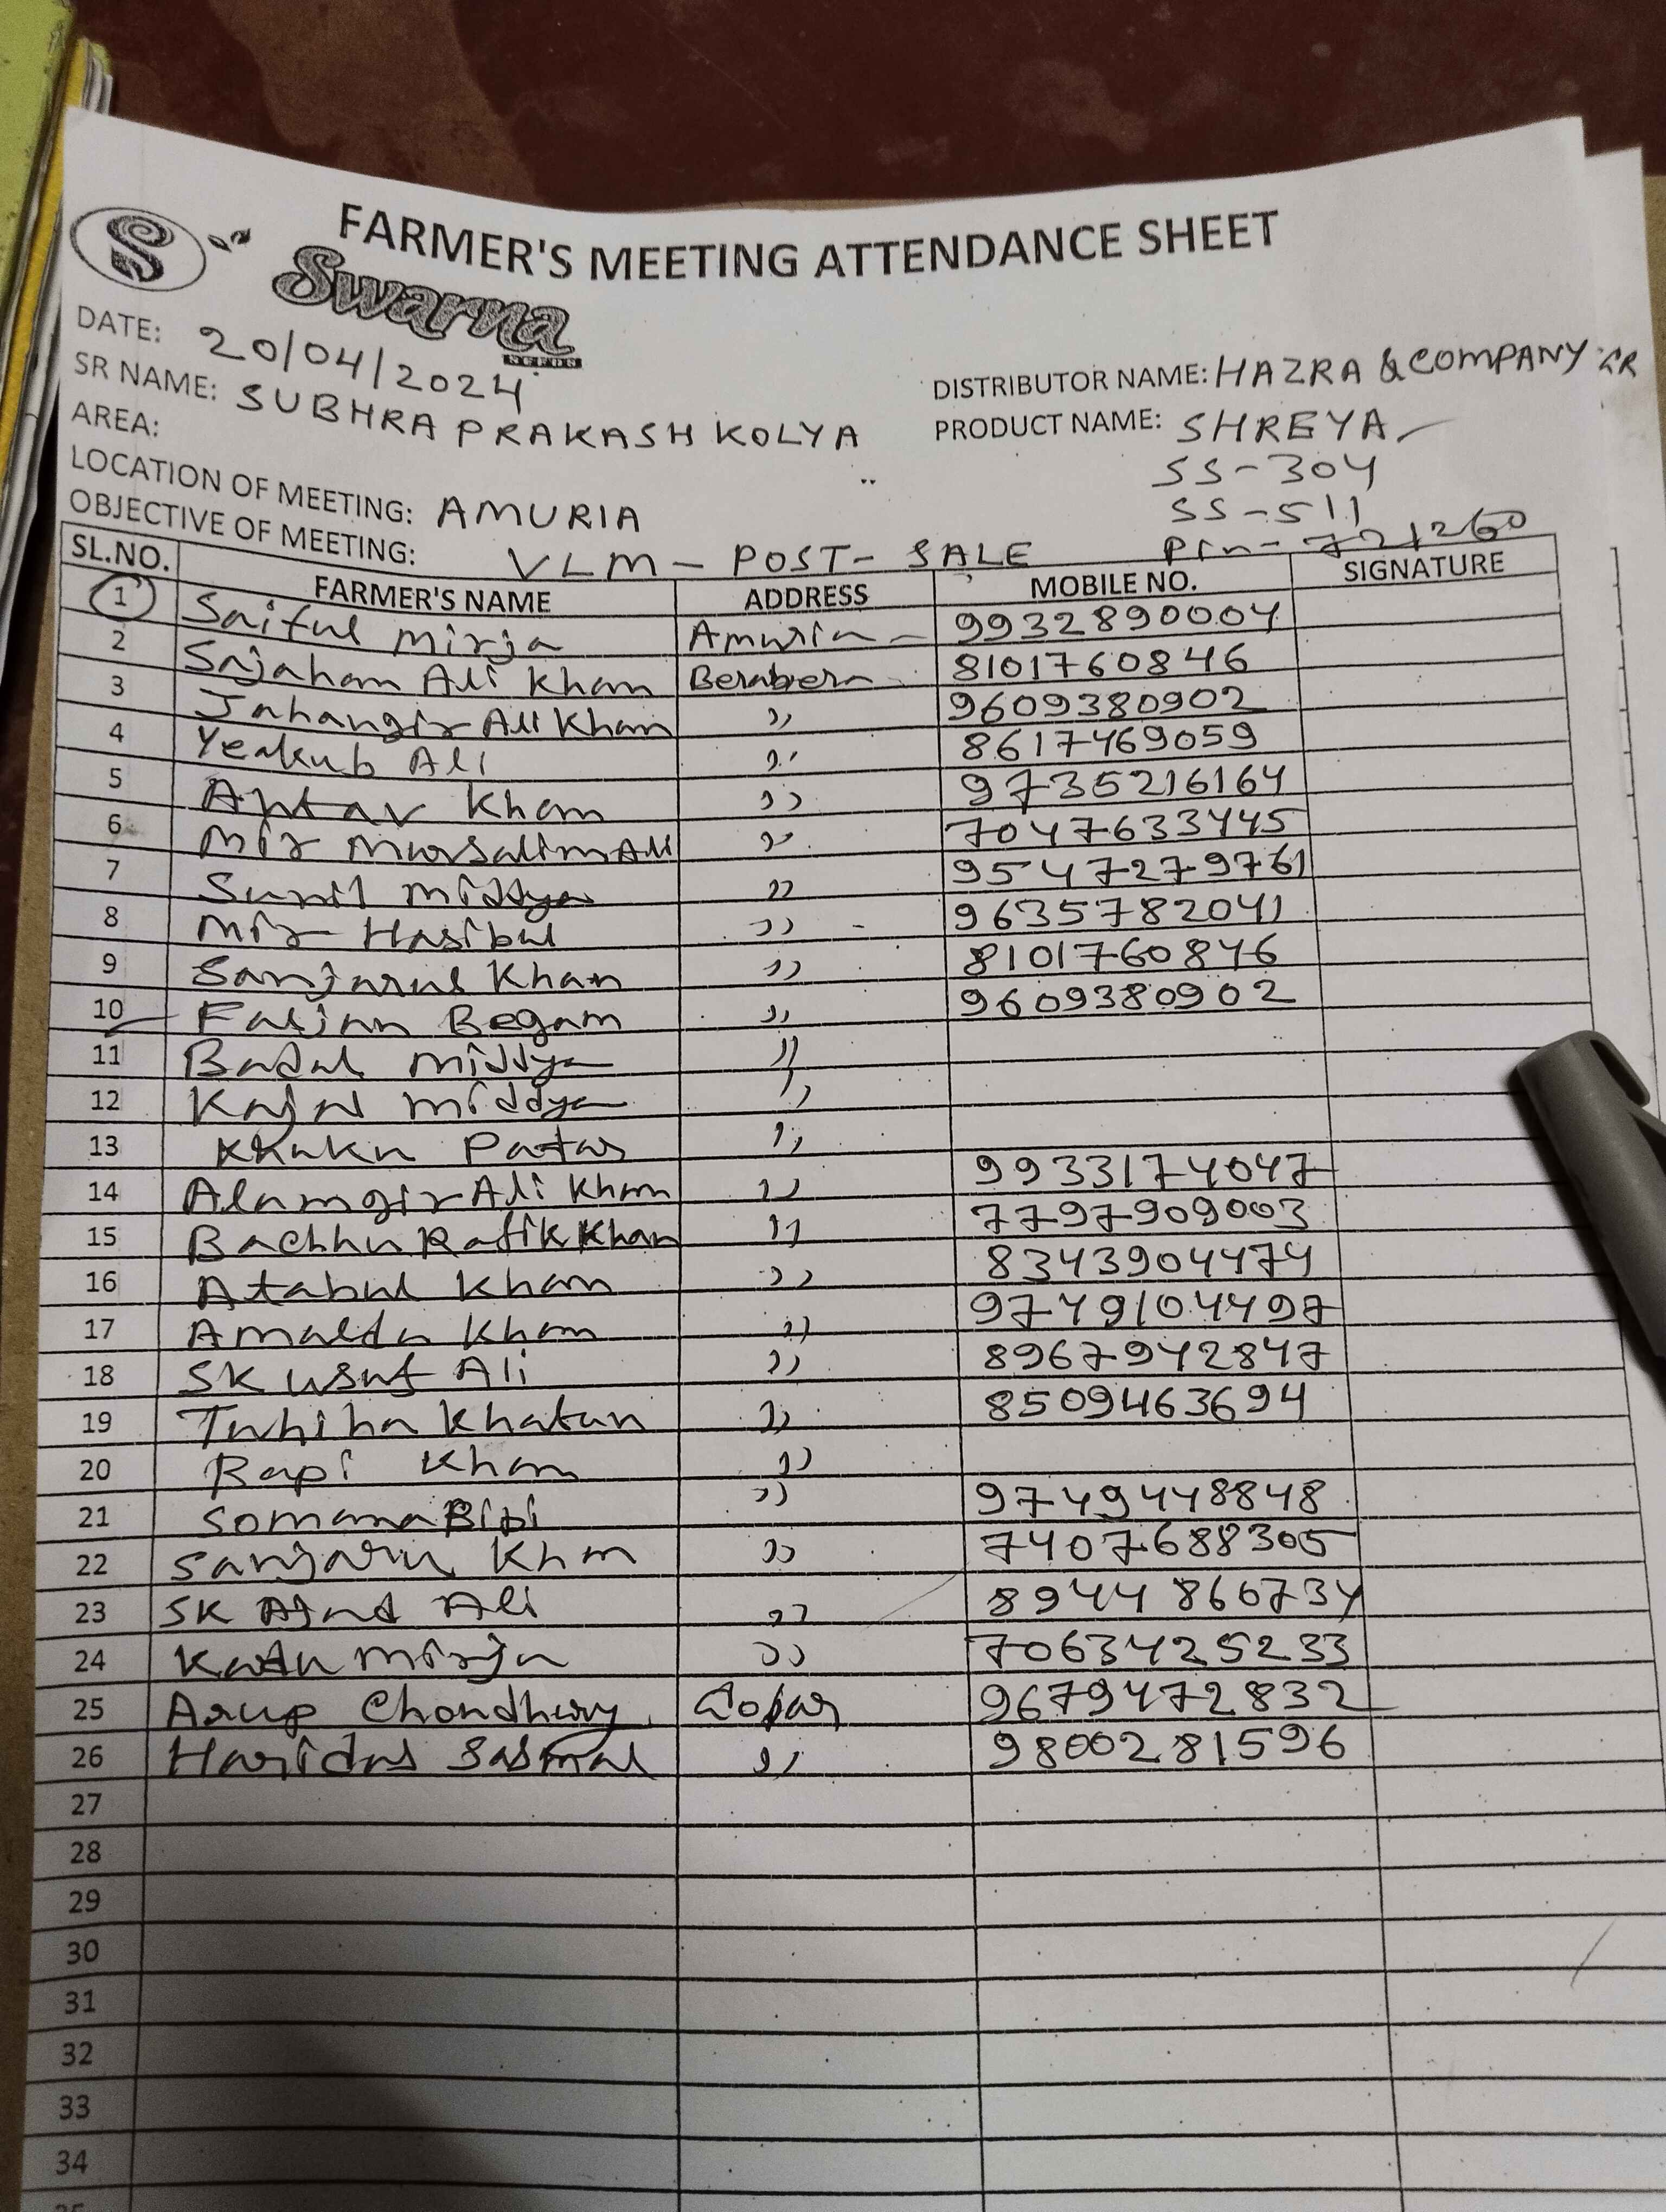 FARMER'S MEETING ATTENDANCE SHEET
S Swarna
DATE: 20/04/2024
SR NAME: SUBHRA PRAKASH KOLYA
AREA:
LOCATION OF MEETING: AMURIA
OBJECTIVE OF MEETING: VLM - POST - SALE
DISTRIBUTOR NAME: HAZRA & COMPANY
PRODUCT NAME: SHREYA
SS-304
SS-511
Pin- 721260
SL.NO. FARMER'S NAME ADDRESS MOBILE NO. SIGNATURE
1 Saiful Mirja Amuria 9932890004
2 Sajahan Ali Khan Berabera 8101760846
3 Jahangir Ali Khan ,, 9609380902
4 Yeakub Ali ,, 8617469059
5 Aptar Khan ,, 9735216164
6 Mir Mursalim Ali ,, 7047633445
7 Sunil Middya ,, 9547279761
8 Mir Hasibul ,, 9635782041
9 Sanjarul Khan ,, 8101760846
10 Begam ,, 9609380902
11 Badal Middya ,,
12 Kajal Middya ,,
13 Khuku Patar ,,
14 Alamgir Ali Khan ,, 9933174047
15 Bachhu Rafik Khan ,, 7797909003
16 Atabul Khan ,, 8343904474
17 Khan ,, 9749104497
18 SK Usuf Ali ,, 8967942847
19 Tuhina Khatun ,, 8509463694
20 Rapi Khan ,,
21 Somana Bibi ,, 9749448848
22 Sanjaru Khan ,, 7407688305
23 SK Ali ,, 8944866734
24 Mirja ,, 7063425233
25 Arup Chondhury 9679472832
26 Haridas Sasmal ,, 9800281596
27
28
29
30
31
32
33
34
35